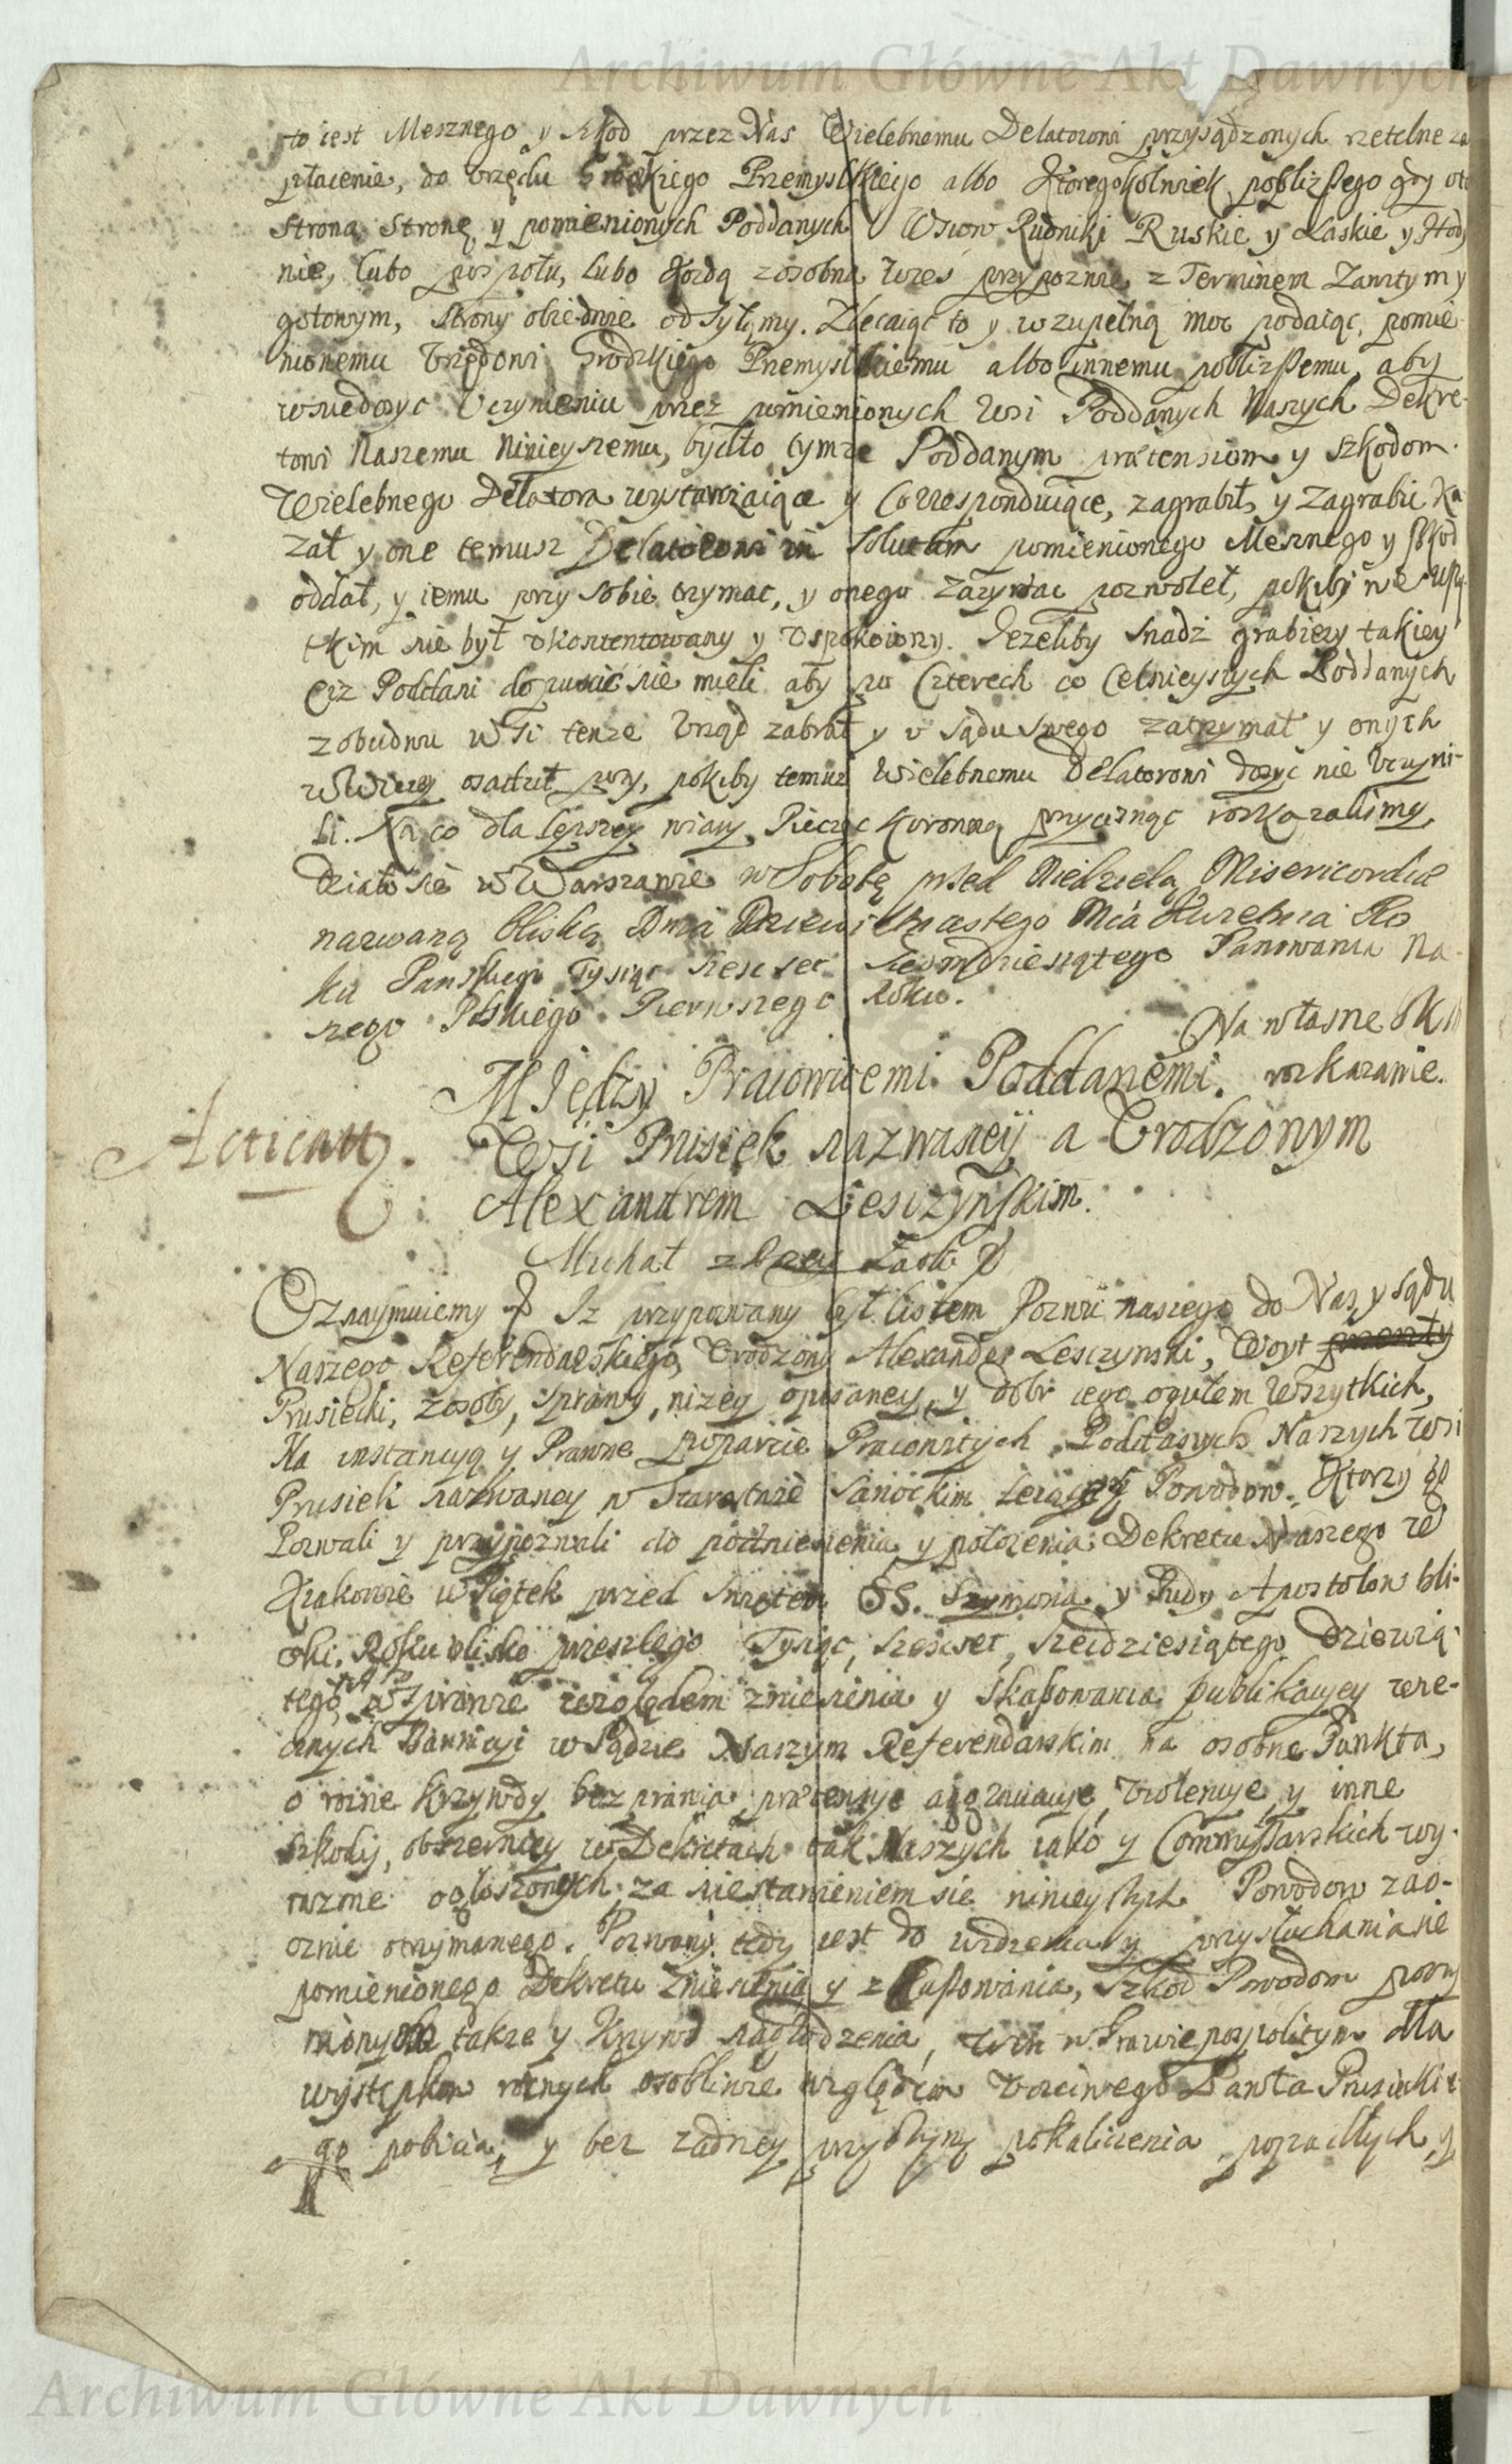 Archiwum Główne Akt Dawnych
to iest Mesznego y szkod przez Nas Wielebnemu Delatorowi przysądzonych rzetelne za
płacenie, do Vrzędu Grodzkiego Przemyslkiego albo ktoregokolwiek poblizszego gdy
strona stronę y pomienionych Poddanych Wsiow Rudniki Ruskie y Laskie y Hody
nie, lubo pospołu, lubo kozdą zosobna wies przypozwie, z Terminem Zawitym y
gotowym, strony obiedwie odsyłamy. Zlecaiąc to y wzupełną moc podaiąc, pomie
nionemu Vrzędowi Grodzkiego Przemyslkiemu albo innemu poblizszemu, aby
wniedosyc Vczynieniu przez pomienionych wsi Poddanych Naszych Dekre-
towi Naszemu Ninieyszemu, bydło tymze Poddanym praetensiom y szkodom
Wielebnego Delatora wystarczaiące y Corresponduiące, zagrabił, y zagrabic ka
zał y one temusz Delatorowi in solutam pomienionego Mesznego y szkod
oddał, y iemu przy sobie trzymac, y onego zazywac pozwolił, pokiby we wszy
tkim nie był vkontentowany y Vspokoiony. Jezeliby snadź grabiezy takiey
Ciz Poddani dopuscić nie mieli aby po Czterech co Celnieyszych Poddanych
zobudwu wsi tenze Vrząd zabrał y v sądu swego zatrzymał y onych
wWiezy osadził poty, pokiby temuz Wielebnemu Delatorowi dosyć nie Vczyni-
li. Na co dla lepszey wiary Pieczęc Koronną przycisnąc roskazalismy
Działo się wWarszawie w Sobotę przed Niedzielą Misericordiae
nazwaną bliską Dnia Dziewiętnastego Mca Kwietnia Ro
ku Panskiego Tysiąc szescset siedmdziesiątego Panowania Na-
szego Polskiego Pierwszego Roku.
Na własne JKM
rozkazanie.
Między Pracowitemi Poddanemi
Wsi Prusiek nazwaney a Vrodzonym
Alexandrem Lesczynskim.
Acticatt.
Michał z Bozey Łaski
Oznaymuiemy Iz przypozwany był listem Pozwu naszego do Nas y sądu
Naszego Referendarskiego, Vrodzony Alexander Lesczynski, Woyt
Prusiecki, zosoby, sprawy, nizey opisaney, y dobr iego ogułem Wszytkich,
Na instancyą y Prawne poparcie Pracowitych Poddanych Naszych wsi
Prusiek nazwaney w Starostwie Sanockim lezącey Powodow, Ktorzy go
Pozwali y przypozwali do podniesienia y połozenia Dekretu Naszego w
Krakowie wPiątek przed Swiętem SS. Szymona y Judy Apostolow bli-
ski, Roku blisko przeszłego Tysiąc, szescset, szescdziesiątego dziewią-
tego, wsprawie względem zniesienia y skassowania publikacyey wie-
cznych Bannicyi wSądzie Naszym Referendarskim na osobne Punkta,
o rozne krzywdy bezprawia, praetensye aggrawacye, Violencye, y inne
szkody, obszerniey w Dekretach tak Naszych iako y Commissarskich wy-
razme ogłoszonych, za niestanieniem sie ninieyszych Powodow zao-
cznie otrzymanego. Pozwany tedy iest do widzenia y przysłuchania sie
pomienionego Dekretu zniesienia y zkassowania, szkod Powodom
mionych takze y Krzywd nagrodzenia, win w Prawie pospolitym dla
występkow roznych osobliwie względem Vczciwego Pawła Prusieckie
go pobicia, y bez zadney przyczyny pokaliczenia popadłych, y
Archiwum Główne Akt Dawnych